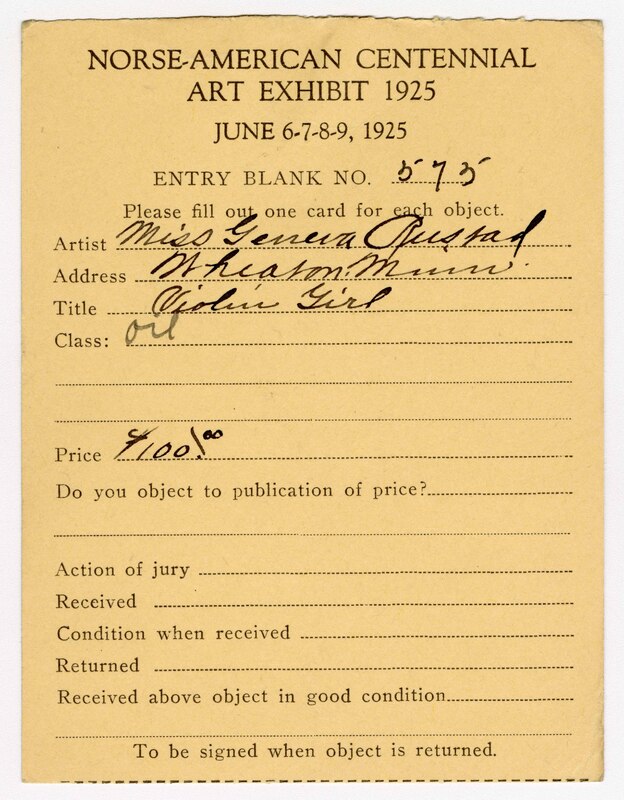 NORSE-AMERICAN CENTENNIAL
ART EXHIBIT 1925
JUNE 6-7-8-9, 1925
ENTRY BLANK NO. 575
Please fill out one card for each object.
Artist Miss Geneva Rustad
Address Wheaton. Minn.
Title Violin Girl
Class: oil
Price $100.00
Do you object to publication of price?
Action of jury
Received
Condition when received
Returned
Received above object in good condition
To be signed when object is returned.